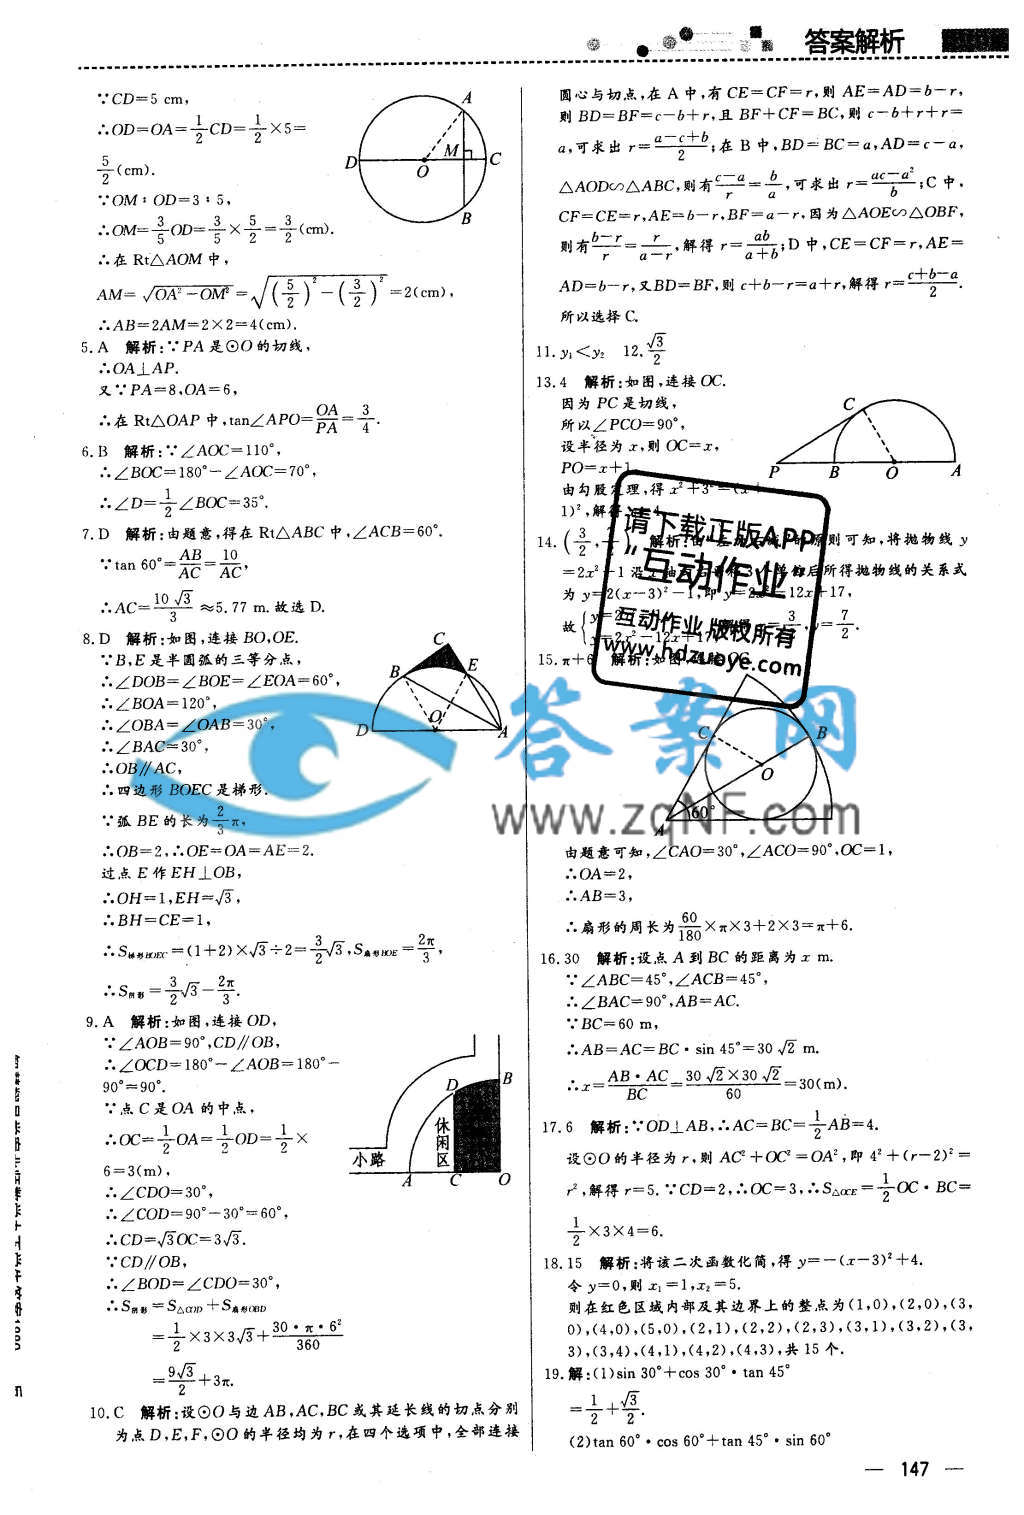 答案解析
∵CD=5 cm,
∴OD=OA=1/2CD=1/2×5=
5/2(cm).
∵OM:OD=3:5,
∴OM=3/5OD=3/5×5/2=3/2(cm).
∴在 Rt△AOM 中,
AM=√(OA²-OM²)=√((5/2)²-(3/2)²)=2(cm),
∴AB=2AM=2×2=4(cm).
D M C O A B
5. A 解析:∵PA 是⊙O 的切线,
∴OA⊥AP.
又∵PA=8,OA=6,
∴在 Rt△OAP 中,tan∠APO=OA/PA=3/4.
6. B 解析:∵∠AOC=110°,
∴∠BOC=180°-∠AOC=70°,
∴∠D=1/2∠BOC=35°.
7. D 解析:由题意,得在 Rt△ABC 中,∠ACB=60°.
∵tan 60°=AB/AC=10/AC,
∴AC=10√3/3≈5.77 m.故选 D.
8. D 解析:如图,连接 BO,OE.
∵B,E 是半圆弧的三等分点,
∴∠DOB=∠BOE=∠EOA=60°,
∴∠BOA=120°,
∴∠OBA=∠OAB=30°,
∴∠BAC=30°,
∴OB∥AC,
∴四边形 BOEC 是梯形.
∵弧 BE 的长为2/3π,
∴OB=2,∴OE=OA=AE=2.
过点 E 作 EH⊥OB,
∴OH=1,EH=√3,
∴BH=CE=1,
∴S梯形BOEC=(1+2)×√3÷2=3/2√3,S扇形BOE=2π/3,
∴S阴影=3/2√3-2π/3.
C B E D O A
9. A 解析:如图,连接 OD,
∵∠AOB=90°,CD∥OB,
∴∠OCD=180°-∠AOB=180°-
90°=90°.
∵点 C 是 OA 的中点,
∴OC=1/2OA=1/2OD=1/2×
6=3(m),
∴∠CDO=30°,
∴∠COD=90°-30°=60°,
∴CD=√3OC=3√3.
∵CD∥OB,
∴∠BOD=∠CDO=30°,
∴S阴影=S△COD+S扇形OBD
=1/2×3×3√3+30·π·6²/360
=9√3/2+3π.
D B 休闲区 小路 A C O
10. C 解析:设⊙O 与边 AB,AC,BC 或其延长线的切点分别
为点 D,E,F,⊙O 的半径均为 r,在四个选项中,全部连接
圆心与切点,在 A 中,有 CE=CF=r,则 AE=AD=b-r,
则 BD=BF=c-b+r,且 BF+CF=BC,则 c-b+r+r=
a,可求出 r=(a-c+b)/2;在 B 中,BD=BC=a,AD=c-a,
△AOD∽△ABC,则有(c-a)/r=b/a,可求出 r=(ac-a²)/b;C 中,
CF=CE=r,AE=b-r,BF=a-r,因为△AOE∽△OBF,
则有(b-r)/r=r/(a-r),解得 r=ab/(a+b);D 中,CE=CF=r,AE=
AD=b-r,又 BD=BF,则 c+b-r=a+r,解得 r=(c+b-a)/2.
所以选择 C.
11. y₁<y₂ 12. √3/2
13. 4 解析:如图,连接 OC.
因为 PC 是切线,
所以∠PCO=90°,
设半径为 x,则 OC=x,
PO=x+1
由勾股定理,得 x²+3²=(x+
1)²,解得
C P B O A
14. (3/2, 解析:由 原则可知,将抛物线 y
=2x²+1 沿 后所得抛物线的关系式
为 y=2(x-3)²-1,即 y=2x²-12x+17,
故 7/2.
15. π+6 解析:如图
C B O A 60°
由题意可知,∠CAO=30°,∠ACO=90°,OC=1,
∴OA=2,
∴AB=3,
∴扇形的周长为60/180×π×3+2×3=π+6.
16. 30 解析:设点 A 到 BC 的距离为 x m.
∵∠ABC=45°,∠ACB=45°,
∴∠BAC=90°,AB=AC.
∵BC=60 m,
∴AB=AC=BC·sin 45°=30√2 m.
∴x=AB·AC/BC=30√2×30√2/60=30(m).
17. 6 解析:∵OD⊥AB,∴AC=BC=1/2AB=4.
设⊙O 的半径为 r,则 AC²+OC²=OA²,即 4²+(r-2)²=
r²,解得 r=5.∵CD=2,∴OC=3,∴S△OCE=1/2OC·BC=
1/2×3×4=6.
18. 15 解析:将该二次函数化简,得 y=-(x-3)²+4.
令 y=0,则 x₁=1,x₂=5.
则在红色区域内部及其边界上的整点为(1,0),(2,0),(3,
0),(4,0),(5,0),(2,1),(2,2),(2,3),(3,1),(3,2),(3,
3),(3,4),(4,1),(4,2),(4,3),共 15 个.
19. 解:(1)sin 30°+cos 30°·tan 45°
=1/2+√3/2.
(2)tan 60°·cos 60°+tan 45°·sin 60°
请下载正版APP
"互动作业
互动作业 版权所有
www.hdzuoye.com
答案网
www.zqNF.com
— 147 —